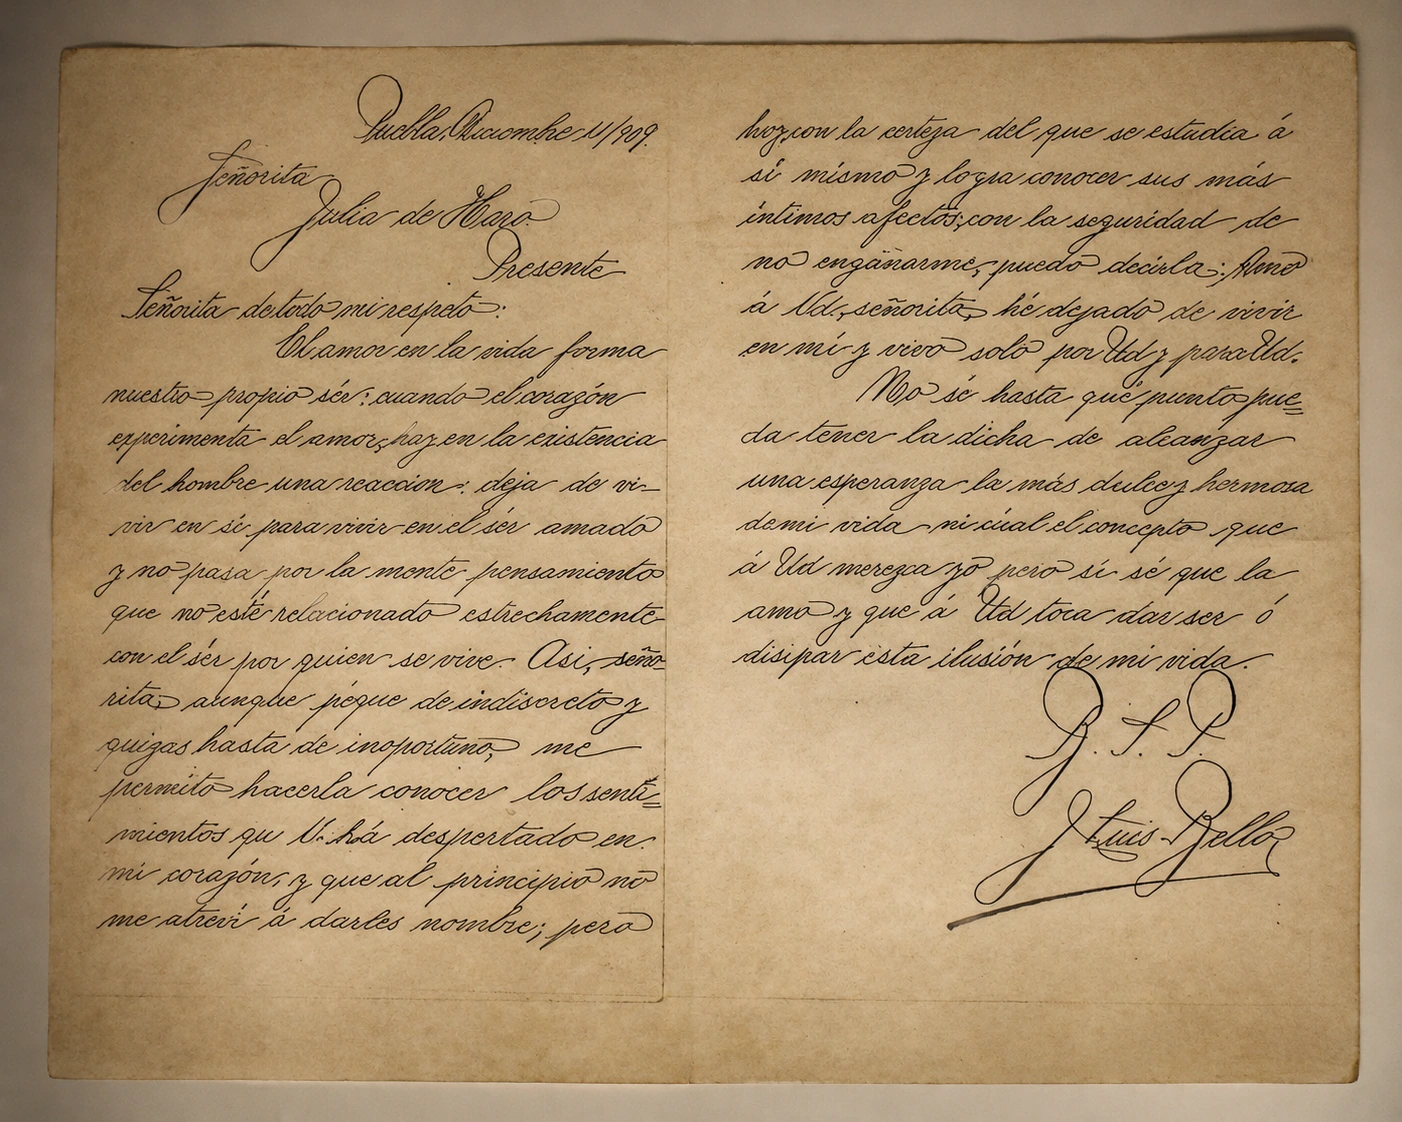 Puebla, Diciembre 11/909.
Señorita
Julia de Haro.
Presente
Señorita de todo mi respeto:
El amor en la vida forma
nuestro propio sér: cuando el corazón
experimenta el amor, hay en la existencia
del hombre una reaccion: deja de vi-
vir en sí para vivir en el sér amado
y no pasa por la mente pensamiento
que no esté relacionado estrechamente
con el sér por quien se vive. Asi, seño-
rita, aunque péque de indiscreto y
quizas hasta de inoportuno, me
permito hacerla conocer los senti=
mientos qu V. há despertado en
mi corazón, y que al principio no
me atreví á darles nombre; pero
hoy, con la certeza del que se estudia á
sí mismo y logra conocer sus más
íntimos afectos; con la seguridad de
no engañarme, puedo decirla: Amo
á Ud., señorita, hé dejado de vivir
en mí y vivo solo por Ud y para Ud.
No sé hasta qué punto pue=
da tener la dicha de alcanzar
una esperanza la más dulce y hermosa
de mi vida ni cúal el concepto que
á Ud merezca yo pero sí sé que la
amo y que á Ud toca dar ser ó
disipar esta ilusión de mi vida.
B. S. P.
J Luis Bello